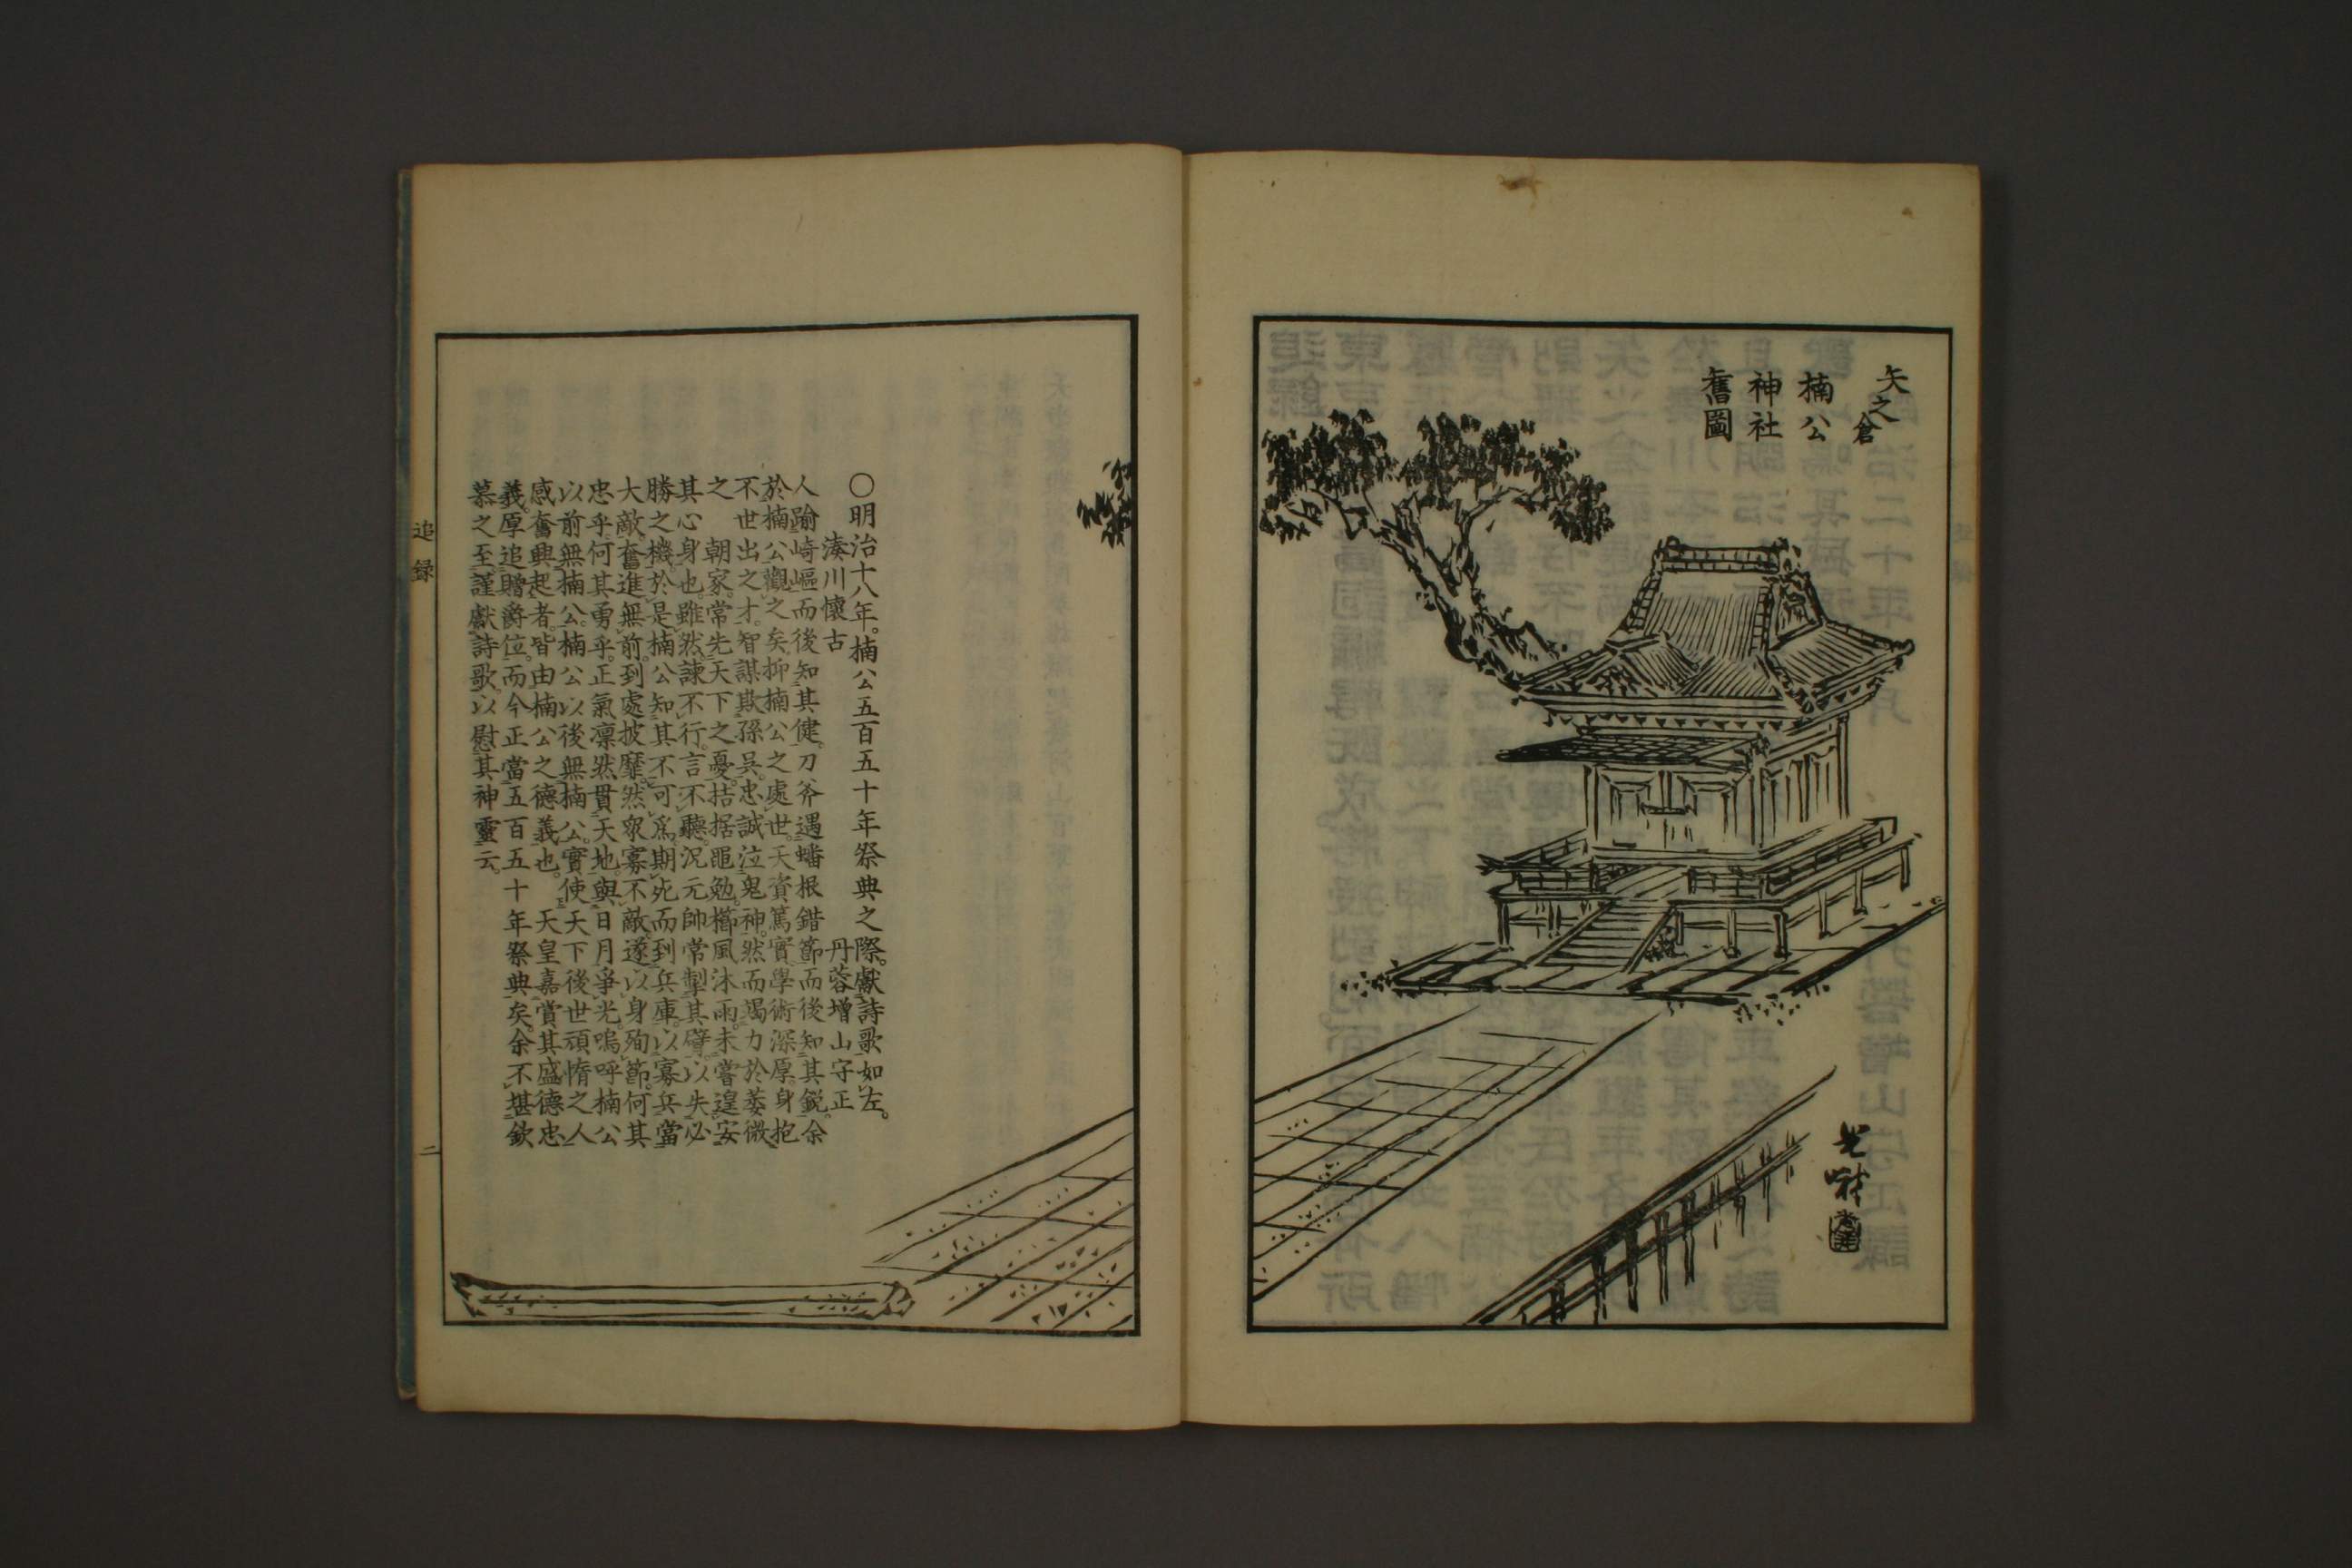 矢之倉
楠公
神社
舊圖
〇明治十八年。楠公五百五十年祭典之際。獻詩歌如左。
湊川懷古　丹蓉增山守正
人踰崎嶇而後知其健。刀斧遇蟠根錯節而後知其銳。余
於楠公觀之矣。抑楠公之處世。天資篤實學術深厚。身抱
不世出之才。智謀欺孫吳。忠誠泣鬼神。然而竭力於萎微
之　朝家。常先天下之憂。拮据黽勉。櫛風沐雨。未嘗遑安
其心身也。雖然諫不行。言不聽。況元帥常掣其臂。以失必
勝之機。於是楠公知其不可爲。期死而到兵庫。以寡兵當
大敵。奮進無前。到處披靡。然衆寡不敵。遂以身殉節。何其
忠乎。何其勇乎。正氣凛然貫天地。與日月爭光。嗚呼楠公
以前無楠公。楠公以後無楠公。實使天下後世頑惰之人
感奮興起者。皆由楠公之德義也。　天皇嘉賞其盛德忠
義。厚追贈爵位。而今正當五百五十年祭典矣。余不堪欽
慕之至。謹獻詩歌。以慰其神靈云。
追錄
二